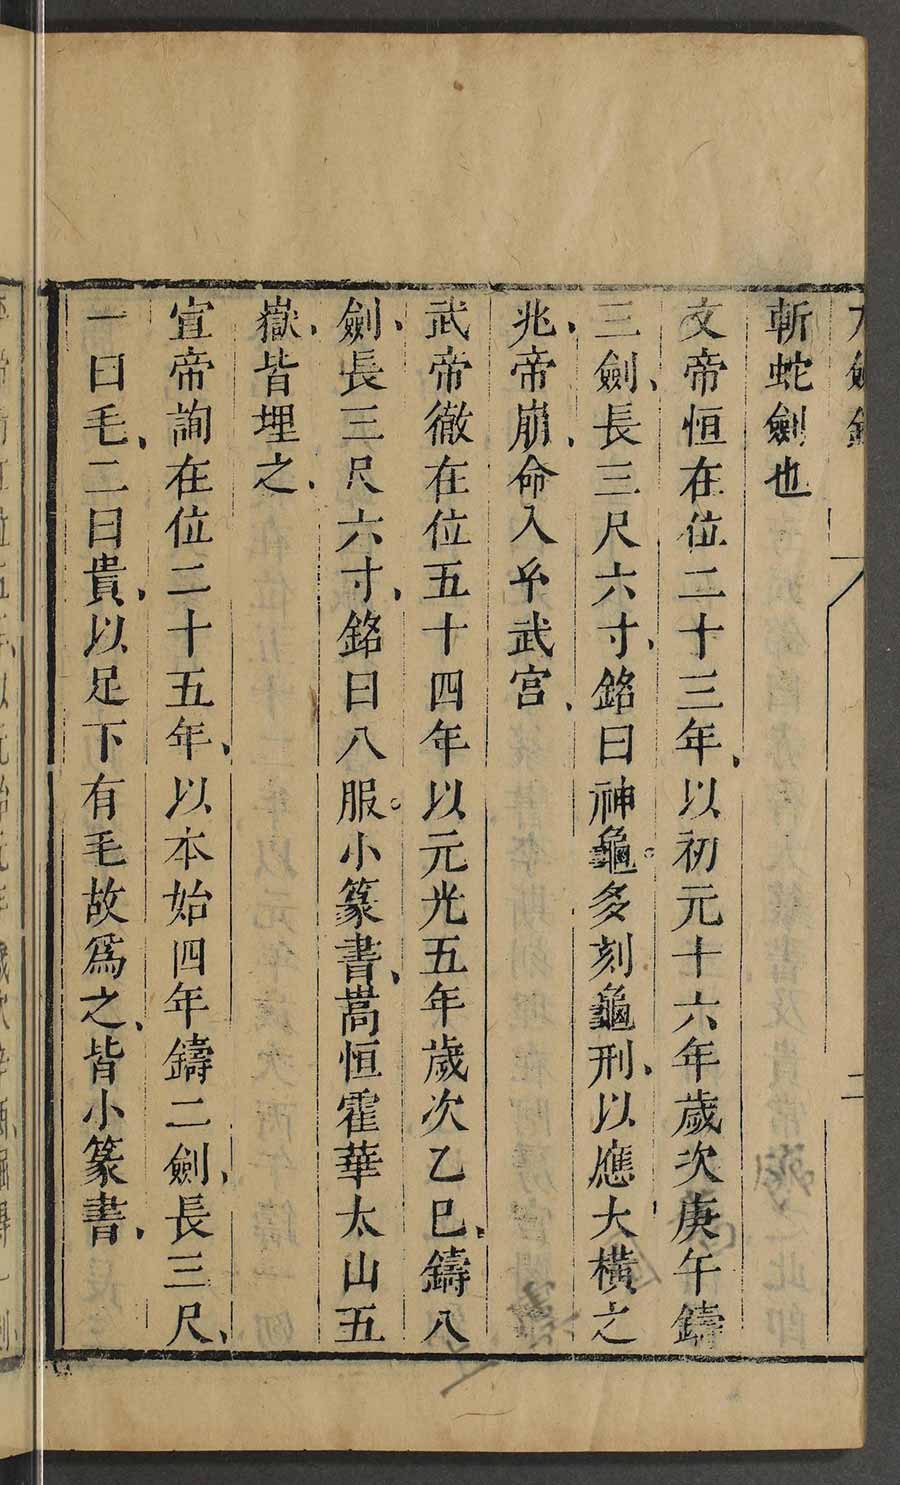 斬蛇劍也
文帝恒在位二十三年、以初元十六年歲次庚午鑄
三劍、長三尺六寸、銘曰神龜。多刻龜刑、以應大橫之
兆、帝崩、命入玊武宮、
武帝徹在位五十四年以元光五年歲次乙巳、鑄八
劍、長三尺六寸、銘曰八服。小篆書、嵩恒霍華太山五
嶽、皆埋之、
宣帝詢在位二十五年、以本始四年鑄二劍、長三尺、
一曰毛、二曰貴、以足下有毛故爲之、皆小篆書、